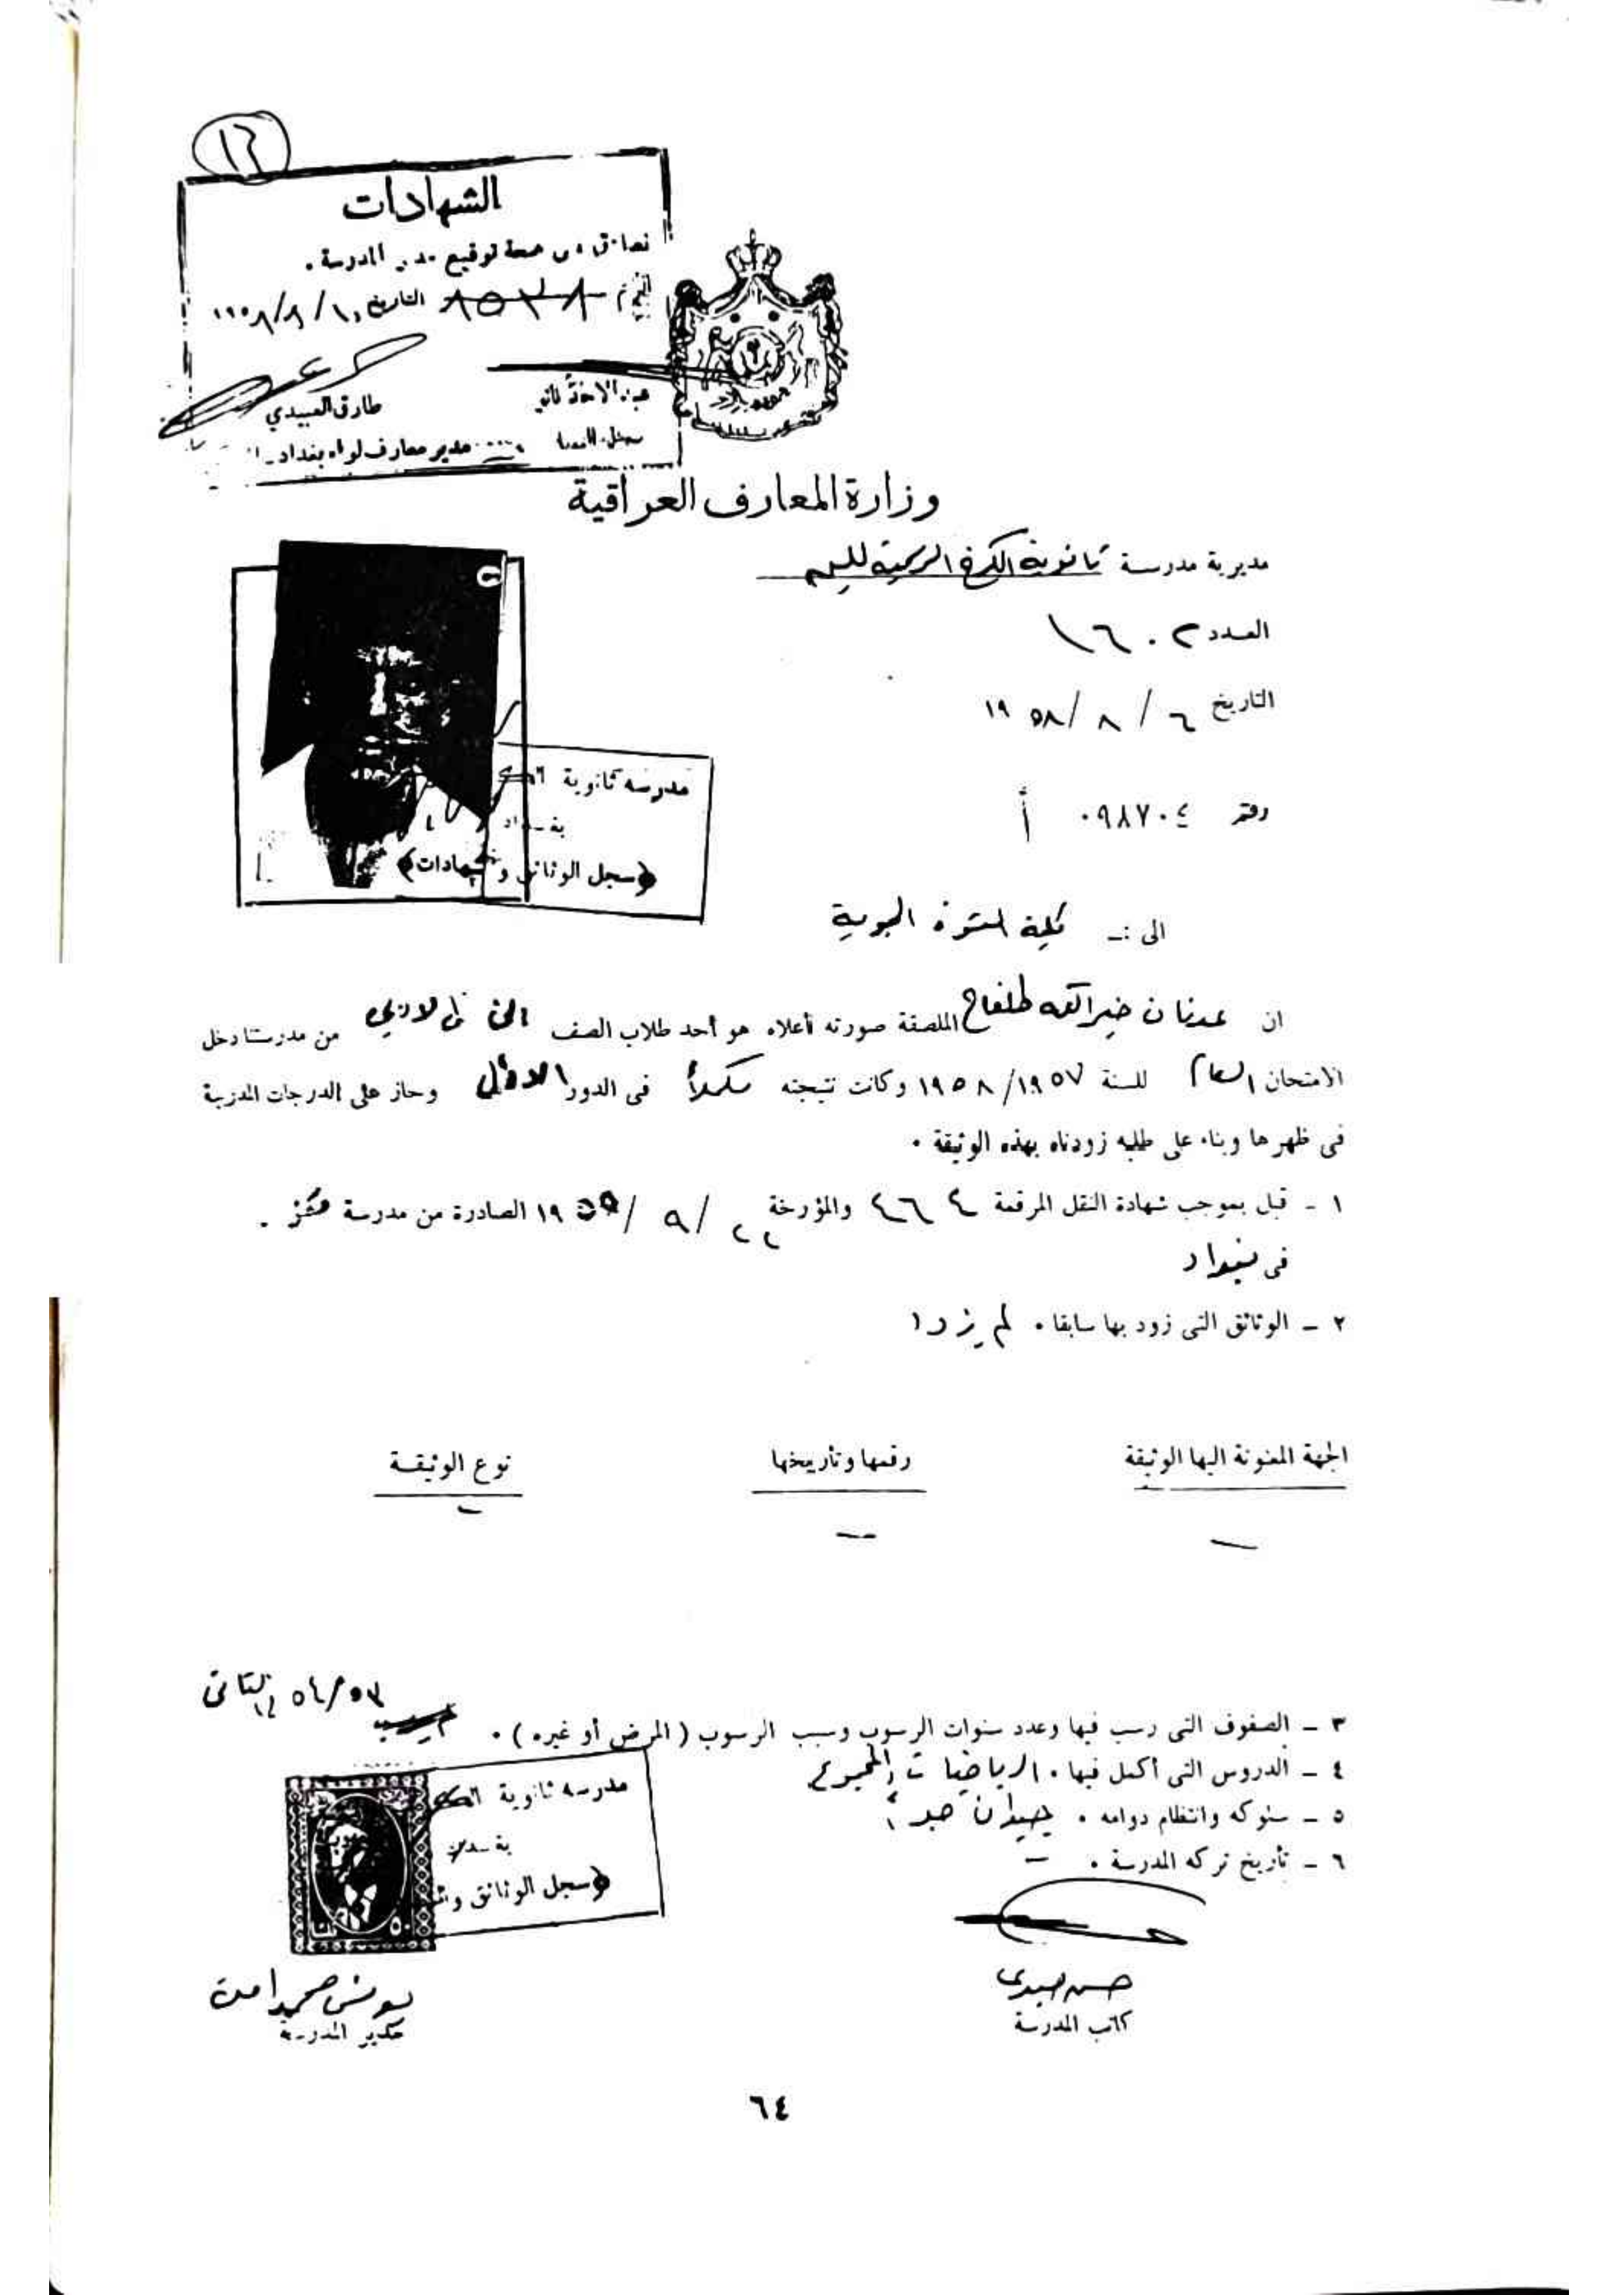 ١٣
الشهادات
نصادق على صحة توقيع مدير المدرسة .
الرقم ٨٥٣٨ التاريخ ١٠ / ٨ / ١٩٥٨
طارق العبيدي
مدير معارف لواء بغداد
وزارة المعارف العراقية
مديرية مدرسة ثانوية الكرخ الرسمية للبنين
العدد ١٦٠٢
التاريخ ٦ / ٨ / ١٩٥٨
رقم ٠٩٨٧٠٤ أ
مدرسه ثانوية الكرخ
بغداد
﴿سجل الوثائق والشهادات﴾
الى :ـ كلية القوة الجوية
ان عدنان خيرالله طلفاح الملصقة صورته أعلاه هو أحد طلاب الصف من مدرستنا دخل
الامتحان العام للسنة ١٩٥٧/١٩٥٨ وكانت نتيجته مكملاً فى الدور الاول وحاز على الدرجات المدرجة
فى ظهرها وبناء على طلبه زودناه بهذه الوثيقة .
١ ـ قبل بموجب شهادة النقل المرقمة ٤٦٤ والمؤرخة ٢٢ / ٩ / ١٩ الصادرة من مدرسة
فى بغداد
٢ ـ الوثائق التى زود بها سابقا . لم يزود
الجهة المعنونة اليها الوثيقة رقمها وتأريخها نوع الوثيقة
ـ ـ ـ
٣ ـ الصفوف التى رسب فيها وعدد سنوات الرسوب وسبب الرسوب ( المرض أو غيره ) . ٥٣/٥٤ الثانى
٤ ـ الدروس التى أكمل فيها . الرياضيات والمجموع
٥ ـ سلوكه وانتظام دوامه . جيدان جداً
٦ ـ تأريخ تركه المدرسة . ـ
مدرسه ثانوية الكرخ
بغداد
﴿سجل الوثائق
كاتب المدرسة
مدير المدرسة
٦٤